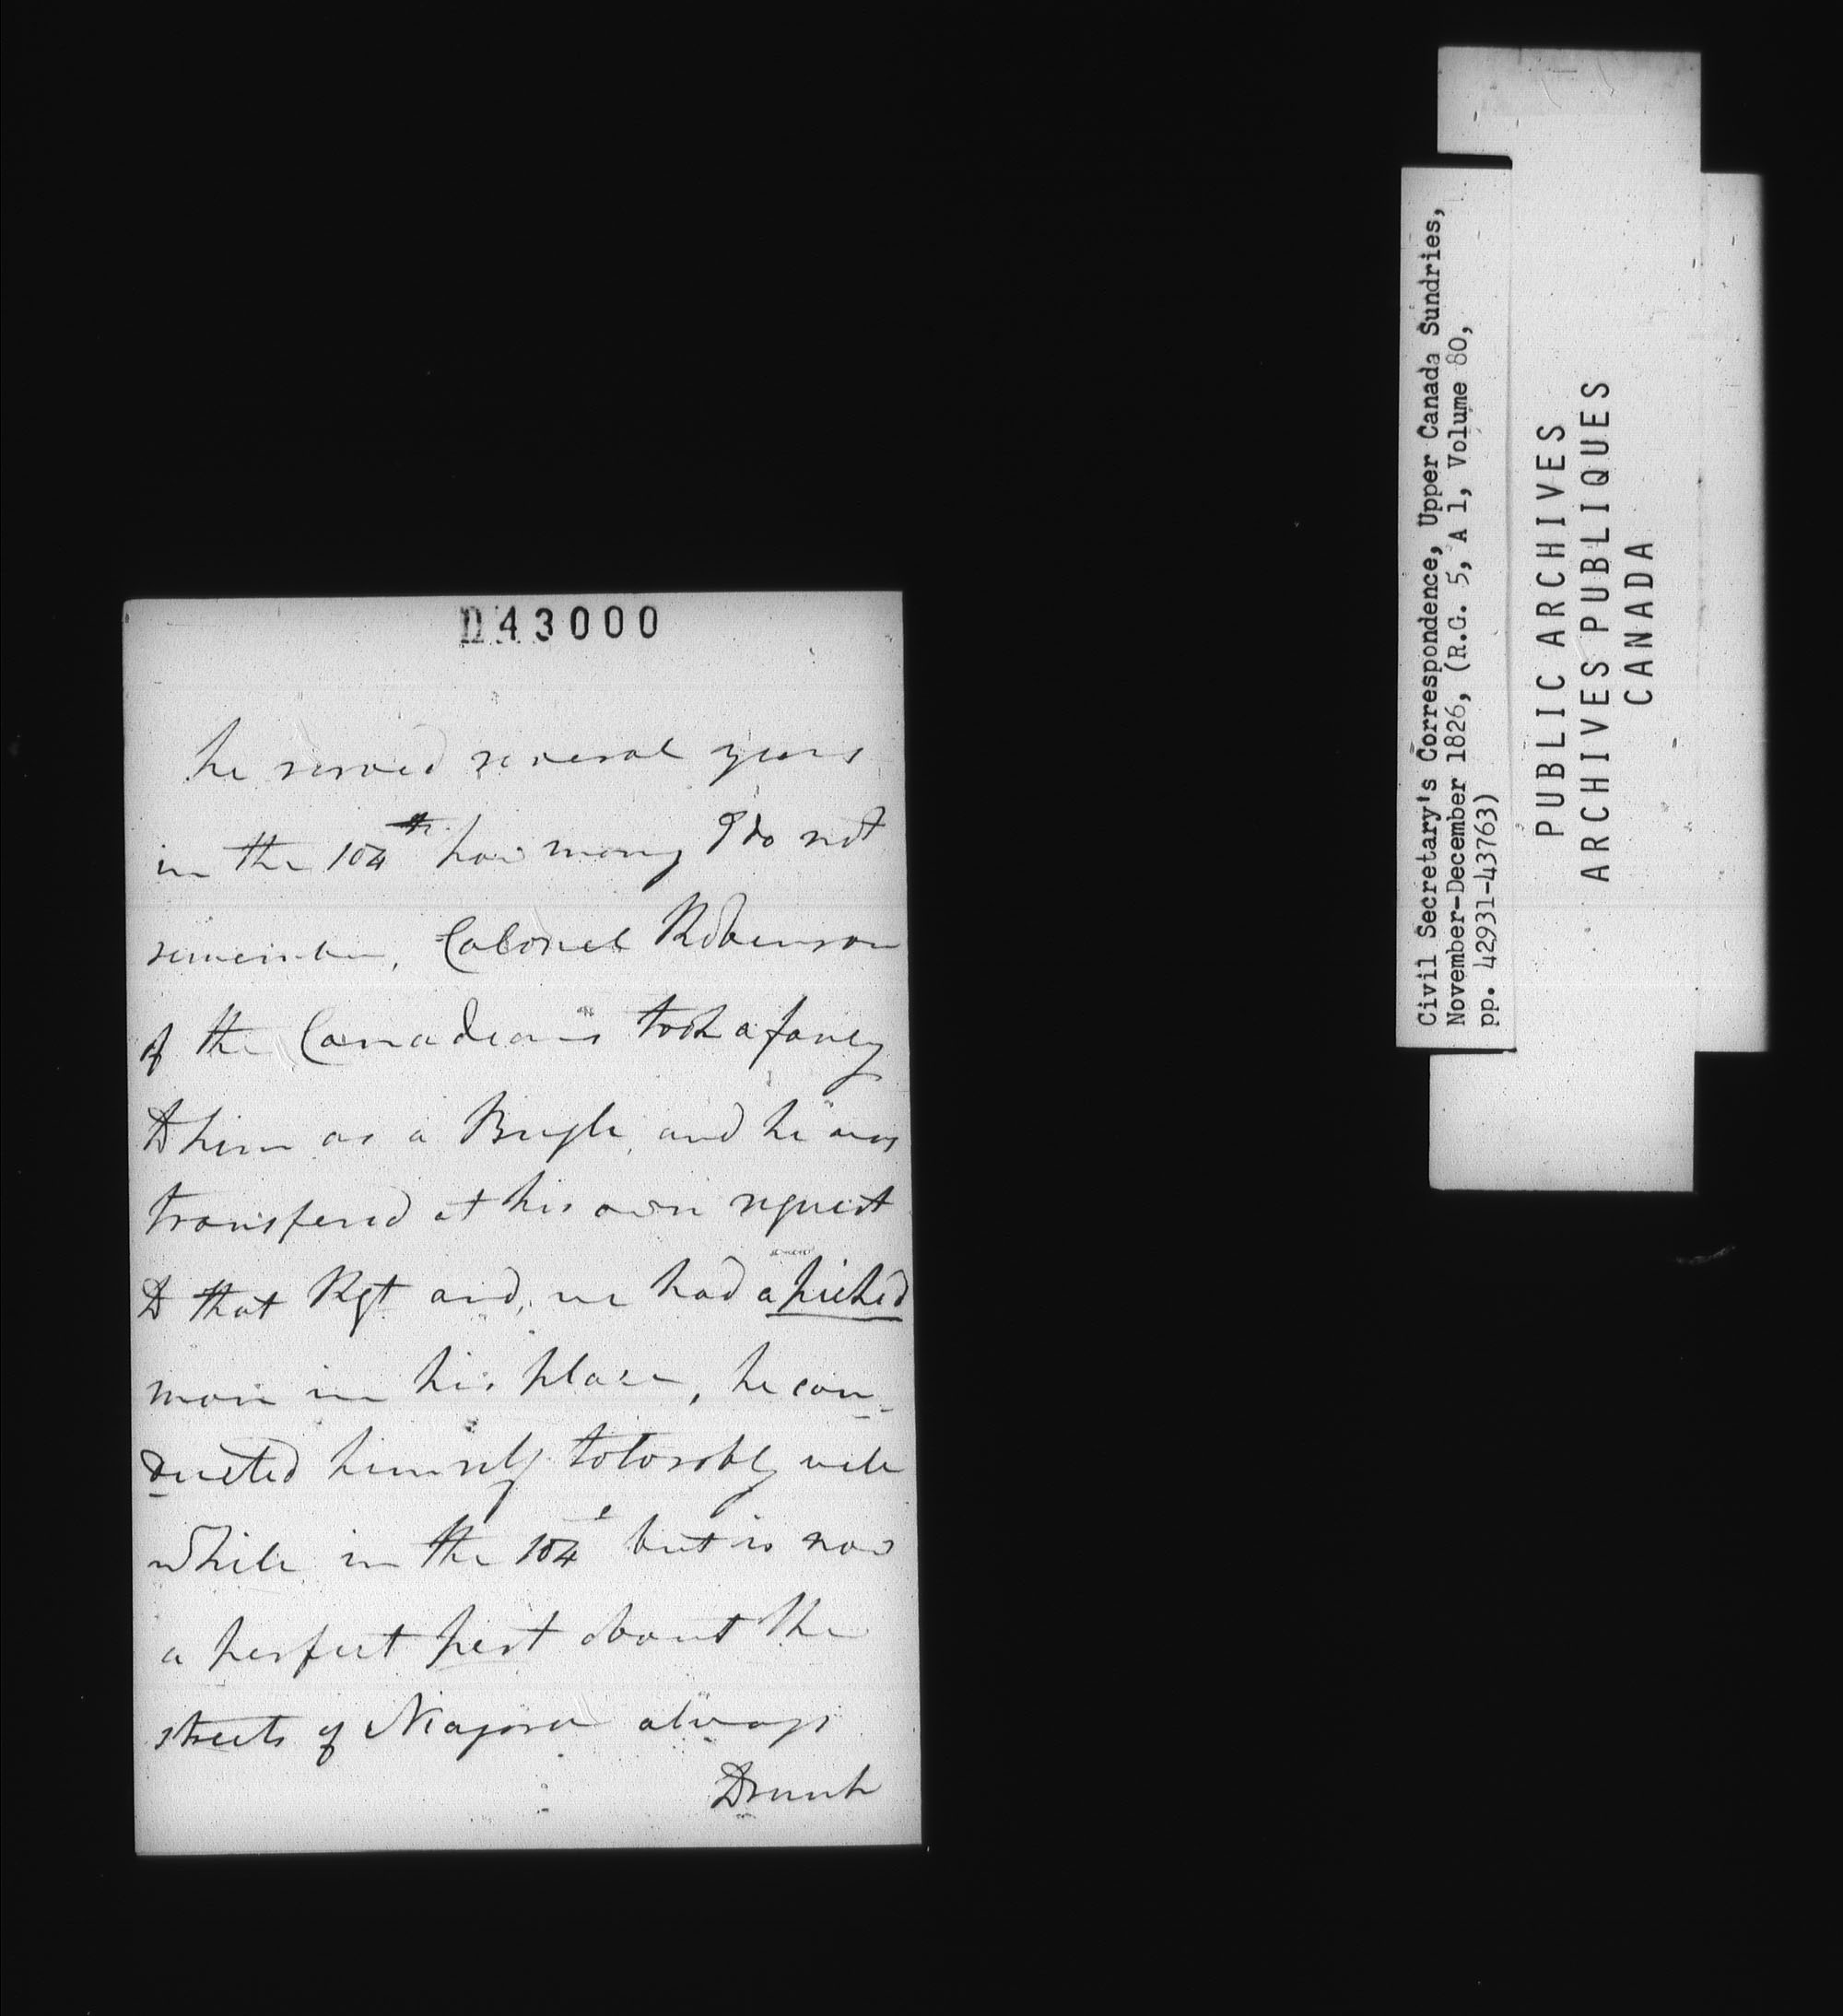 D43000
he served several years
in the 104th how many I do not
remember, Colonel Robinson
of the Canadians took a fancy
to him as a Bugle, and he was
transfered at his own request
to that Rgt and, we had a picked
man in his place, he con-
ducted himself tolorably well
while in the 104 but is now
a perfect pest about the
streets of Niagara always
Drunk
Civil Secretary's Correspondence, Upper Canada Sundries,
November-December 1826, (R.G. 5, A 1, Volume 80,
pp. 42931-43763)
PUBLIC ARCHIVES
ARCHIVES PUBLIQUES
CANADA